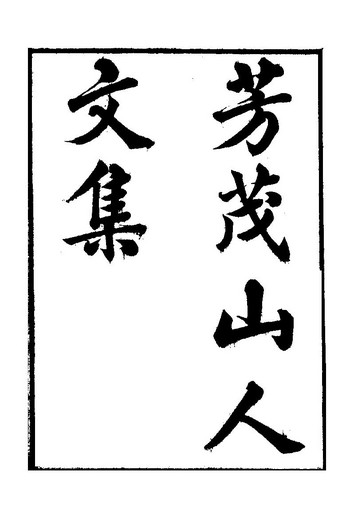 芳茂山人
文集